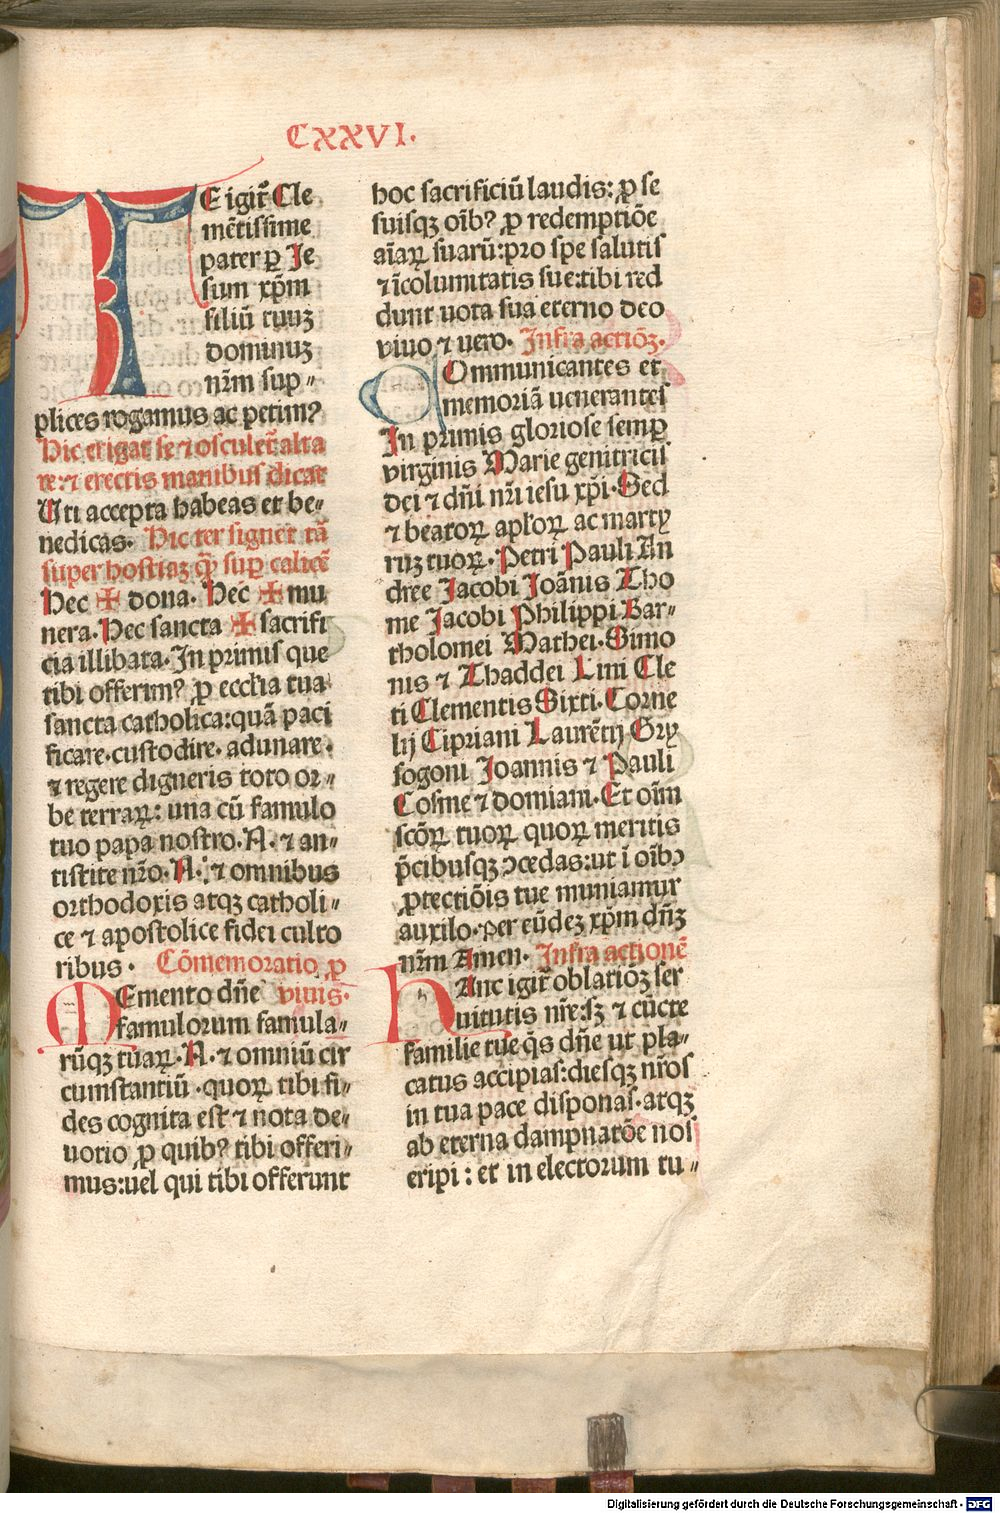 CXXVI.
TE igit᷑ Cle
mẽtissime
pater ꝑ Je
sum xp̄m
filiũ tuuꝫ
dominuꝫ
nr̄m sup⸗
plices rogamus ac petimꝰ
Hic erigat se ⁊ osculet᷑ alta
re: ⁊ erectis manibus dicat
Uti accepta habeas et be⸗
nedicas. Hic ter signet tã
super hostiaꝫ ꝙ̃ suꝑ calicẽ
Hec ✠ dona. Hec ✠ mu
nera. Hec sancta ✠ sacrifi
cia illibata. In primis que
tibi offerimꝰ ꝓ eccl̄ia tua
sancta catholica: quã paci
ficare. custodire. adunare.
⁊ regere digneris toto or⸗
be terraꝝ: una cũ famulo
tuo papa nostro. N. ⁊ an⸗
tistite nr̄o. N. ⁊ omnibus
orthodoxis atqꝫ catholi⸗
ce ⁊ apostolice fidei culto
ribus. Cõmemoratio ꝓ
MEmento dñe vivis.
famulorum famula⸗
rũqꝫ tuaꝝ. N. ⁊ omniũ cir
cumstantiũ. quoꝝ tibi fi⸗
des cognita est ⁊ nota de⸗
uotio ꝓ quibꝰ tibi offeri⸗
mus: uel qui tibi offerunt
hoc sacrificiũ laudis: ꝓ se
suisqꝫ oĩbꝰ ꝓ redemptiõe
aĩaꝝ suarũ: pro spe salutis
⁊ ĩcolumitatis sue: tibi red
dunt uota sua eterno deo
vivo ⁊ uero. Infra actiõꝫ.
COmmunicantes et
memoriã uenerantes
In primis gloriose semꝑ
virginis Marie genitricis
dei ⁊ dñi nr̄i iesu xp̄i. Sed
⁊ beatoꝝ apl̄oꝝ ac marty
ruꝫ tuoꝝ. Petri Pauli An
dree Jacobi Joãnis Tho
me Jacobi Philippi Bar⸗
tholomei Mathei. Simo
nis ⁊ Thaddei Lini Cle
ti Clementis Sixti. Corne
lij Cipriani Laurẽtij Gry
sogoni Joannis ⁊ Pauli
Cosme ⁊ domiani. Et oĩm
scõꝝ tuoꝝ quoꝝ meritis
p̄cibusqꝫ ↄcedas: ut ĩ oĩbꝰ
ꝓtectiõis tue muniamur
auxilo. per eũdeꝫ xp̄m dñꝫ
nr̄m Amen. Infra actionẽ
HAnc igit᷑ oblatiõꝫ ser
uitutis nr̄e: sꝫ ⁊ cũcte
familie tue q̄s dñe ut pla⸗
catus accipias: diesqꝫ nr̄os
in tua pace disponas. atqꝫ
ab eterna dampnatõe nos
eripi: et in electorum tu⸗
Digitalisierung gefördert durch die Deutsche Forschungsgemeinschaft - DFG